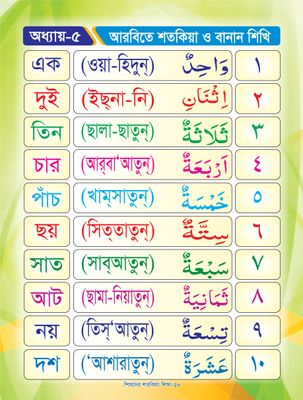 অধ্যায়-৫ আরবিতে শতকিয়া ও বানান শিখি
এক (ওয়া-হিদুন্) وَاحِدٌ ১
দুই (ইছ্না-নি) اِثْنَانِ ২
তিন (ছালা-ছাতুন্) ثَلَاثَةٌ ৩
চার (আর্‌বা‘আতুন্) اَرْبَعَةٌ ৪
পাঁচ (খাম্‌সাতুন্) خَمْسَةٌ ৫
ছয় (সিত্তাতুন্) سِتَّةٌ ৬
সাত (সাব্‌আতুন্) سَبْعَةٌ ৭
আট (ছামা-নিয়াতুন্) ثَمَانِيَةٌ ৮
নয় (তিস্‘আতুন্) تِسْعَةٌ ৯
দশ (‘আশারাতুন্) عَشَرَةٌ ১০
শিশুদের শতকিয়া শিক্ষা-১৬